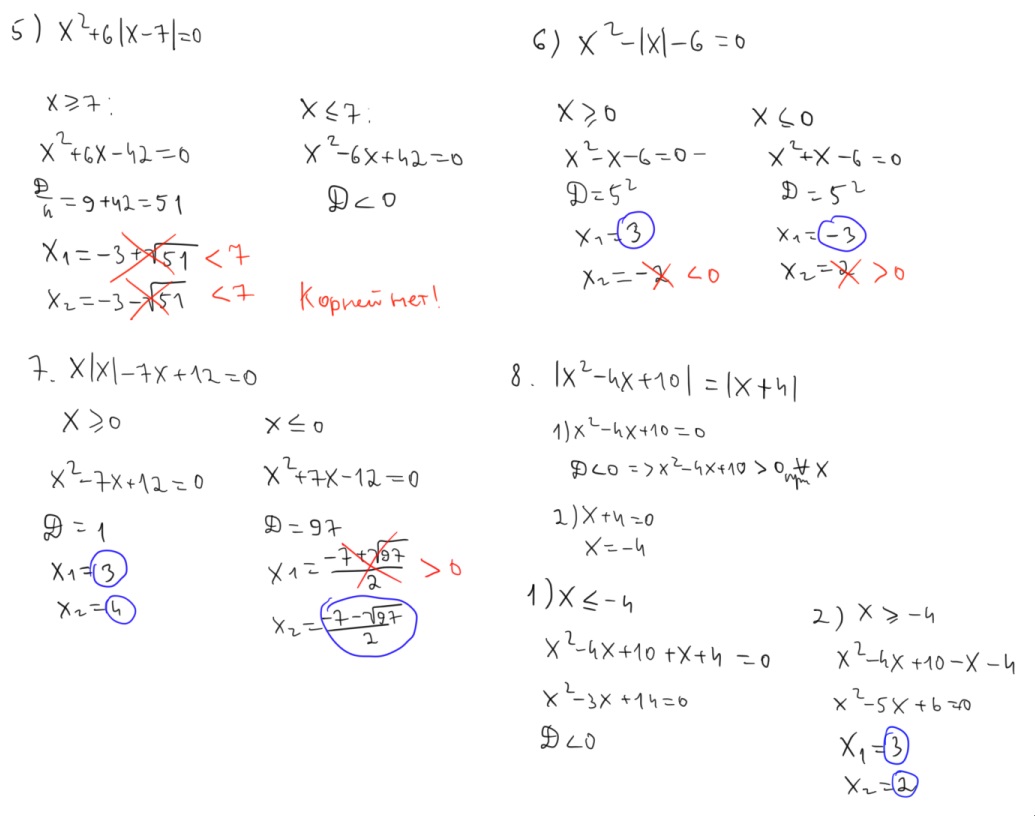 5) x²+6|x-7|=0
x⩾7:
x²+6x-42=0
D/4=9+42=51
x₁=-3+√51 <7
x₂=-3-√51 <7
x≤7:
x²-6x+42=0
D<0
Корней нет!
6) x²-|x|-6=0
x⩾0
x²-x-6=0-
D=5²
x₁=3
x₂=-2 <0
x≤0
x²+x-6=0
D=5²
x₁=-3
x₂=2 >0
7. x|x|-7x+12=0
x⩾0
x²-7x+12=0
D=1
x₁=3
x₂=4
x≤0
x²+7x-12=0
D=97
x₁=(-7+√97)/2 >0
x₂=(-7-√97)/2
8. |x²-4x+10|=|x+4|
1) x²-4x+10=0
D<0 => x²-4x+10>0 при ∀ x
2) x+4=0
x=-4
1) x≤-4
x²-4x+10+x+4=0
x²-3x+14=0
D<0
2) x⩾-4
x²-4x+10-x-4
x²-5x+6=0
x₁=3
x₂=2